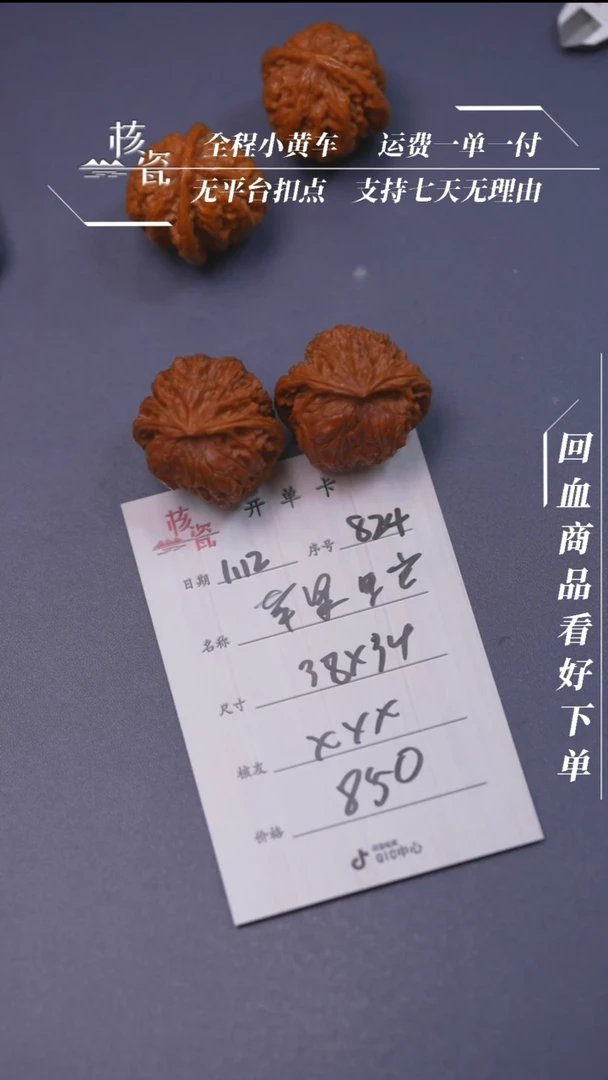 核瓷
全程小黄车 运费一单一付
无平台扣点 支持七天无理由
回血商品看好下单
核瓷
开单卡
日期 1112 序号 824
名称
尺寸 38X34
核友 XXX
价格 850
QIC中心